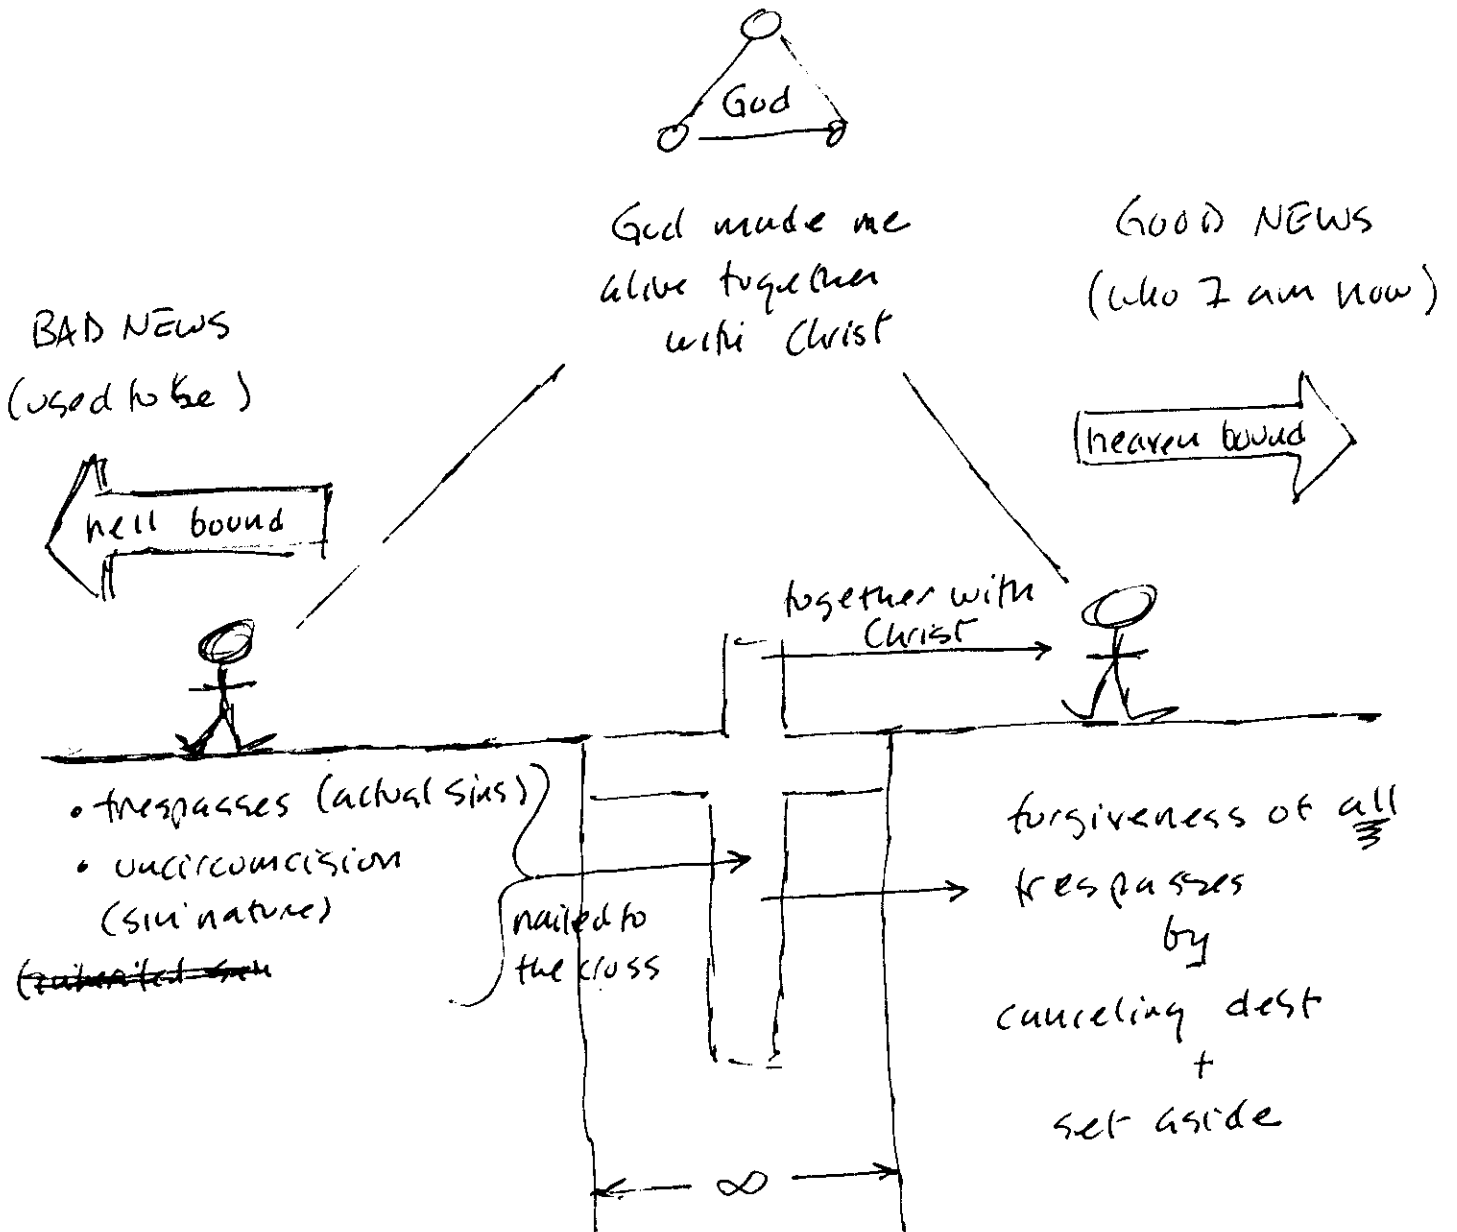 God
God made me
alive together
with Christ
GOOD NEWS
(who I am now)
BAD NEWS
(used to be)
heaven bound
hell bound
together with
Christ
• trespasses (actual sins)
• uncircumcision
(sin nature)
nailed to
the cross
forgiveness of all
trespasses
by
canceling debt
+
set aside
∞